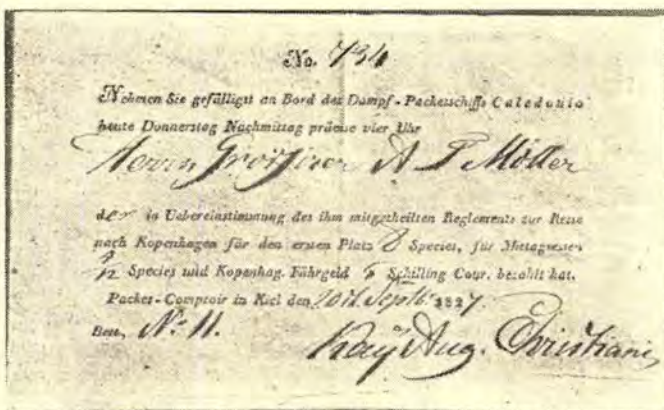 No. 734
Nehmen Sie gefälligst an Bord des Dampf-Packetschiffs Caledonia
heute Donnerstag Nachmittag präcise vier Uhr
Herrn A Möller
der in Uebereinstimmung des ihm mitgetheilten Reglements zur Reise
nach Kopenhagen für den ersten Platz 8 Species, für Mittagessen
½ Species und Kopenhag. Fährgeld Schilling Cour. bezahlt hat.
Packet-Comptoir in Kiel den 20 Septbr 1827.
Bett, No 11.
Kay Aug. Christiani